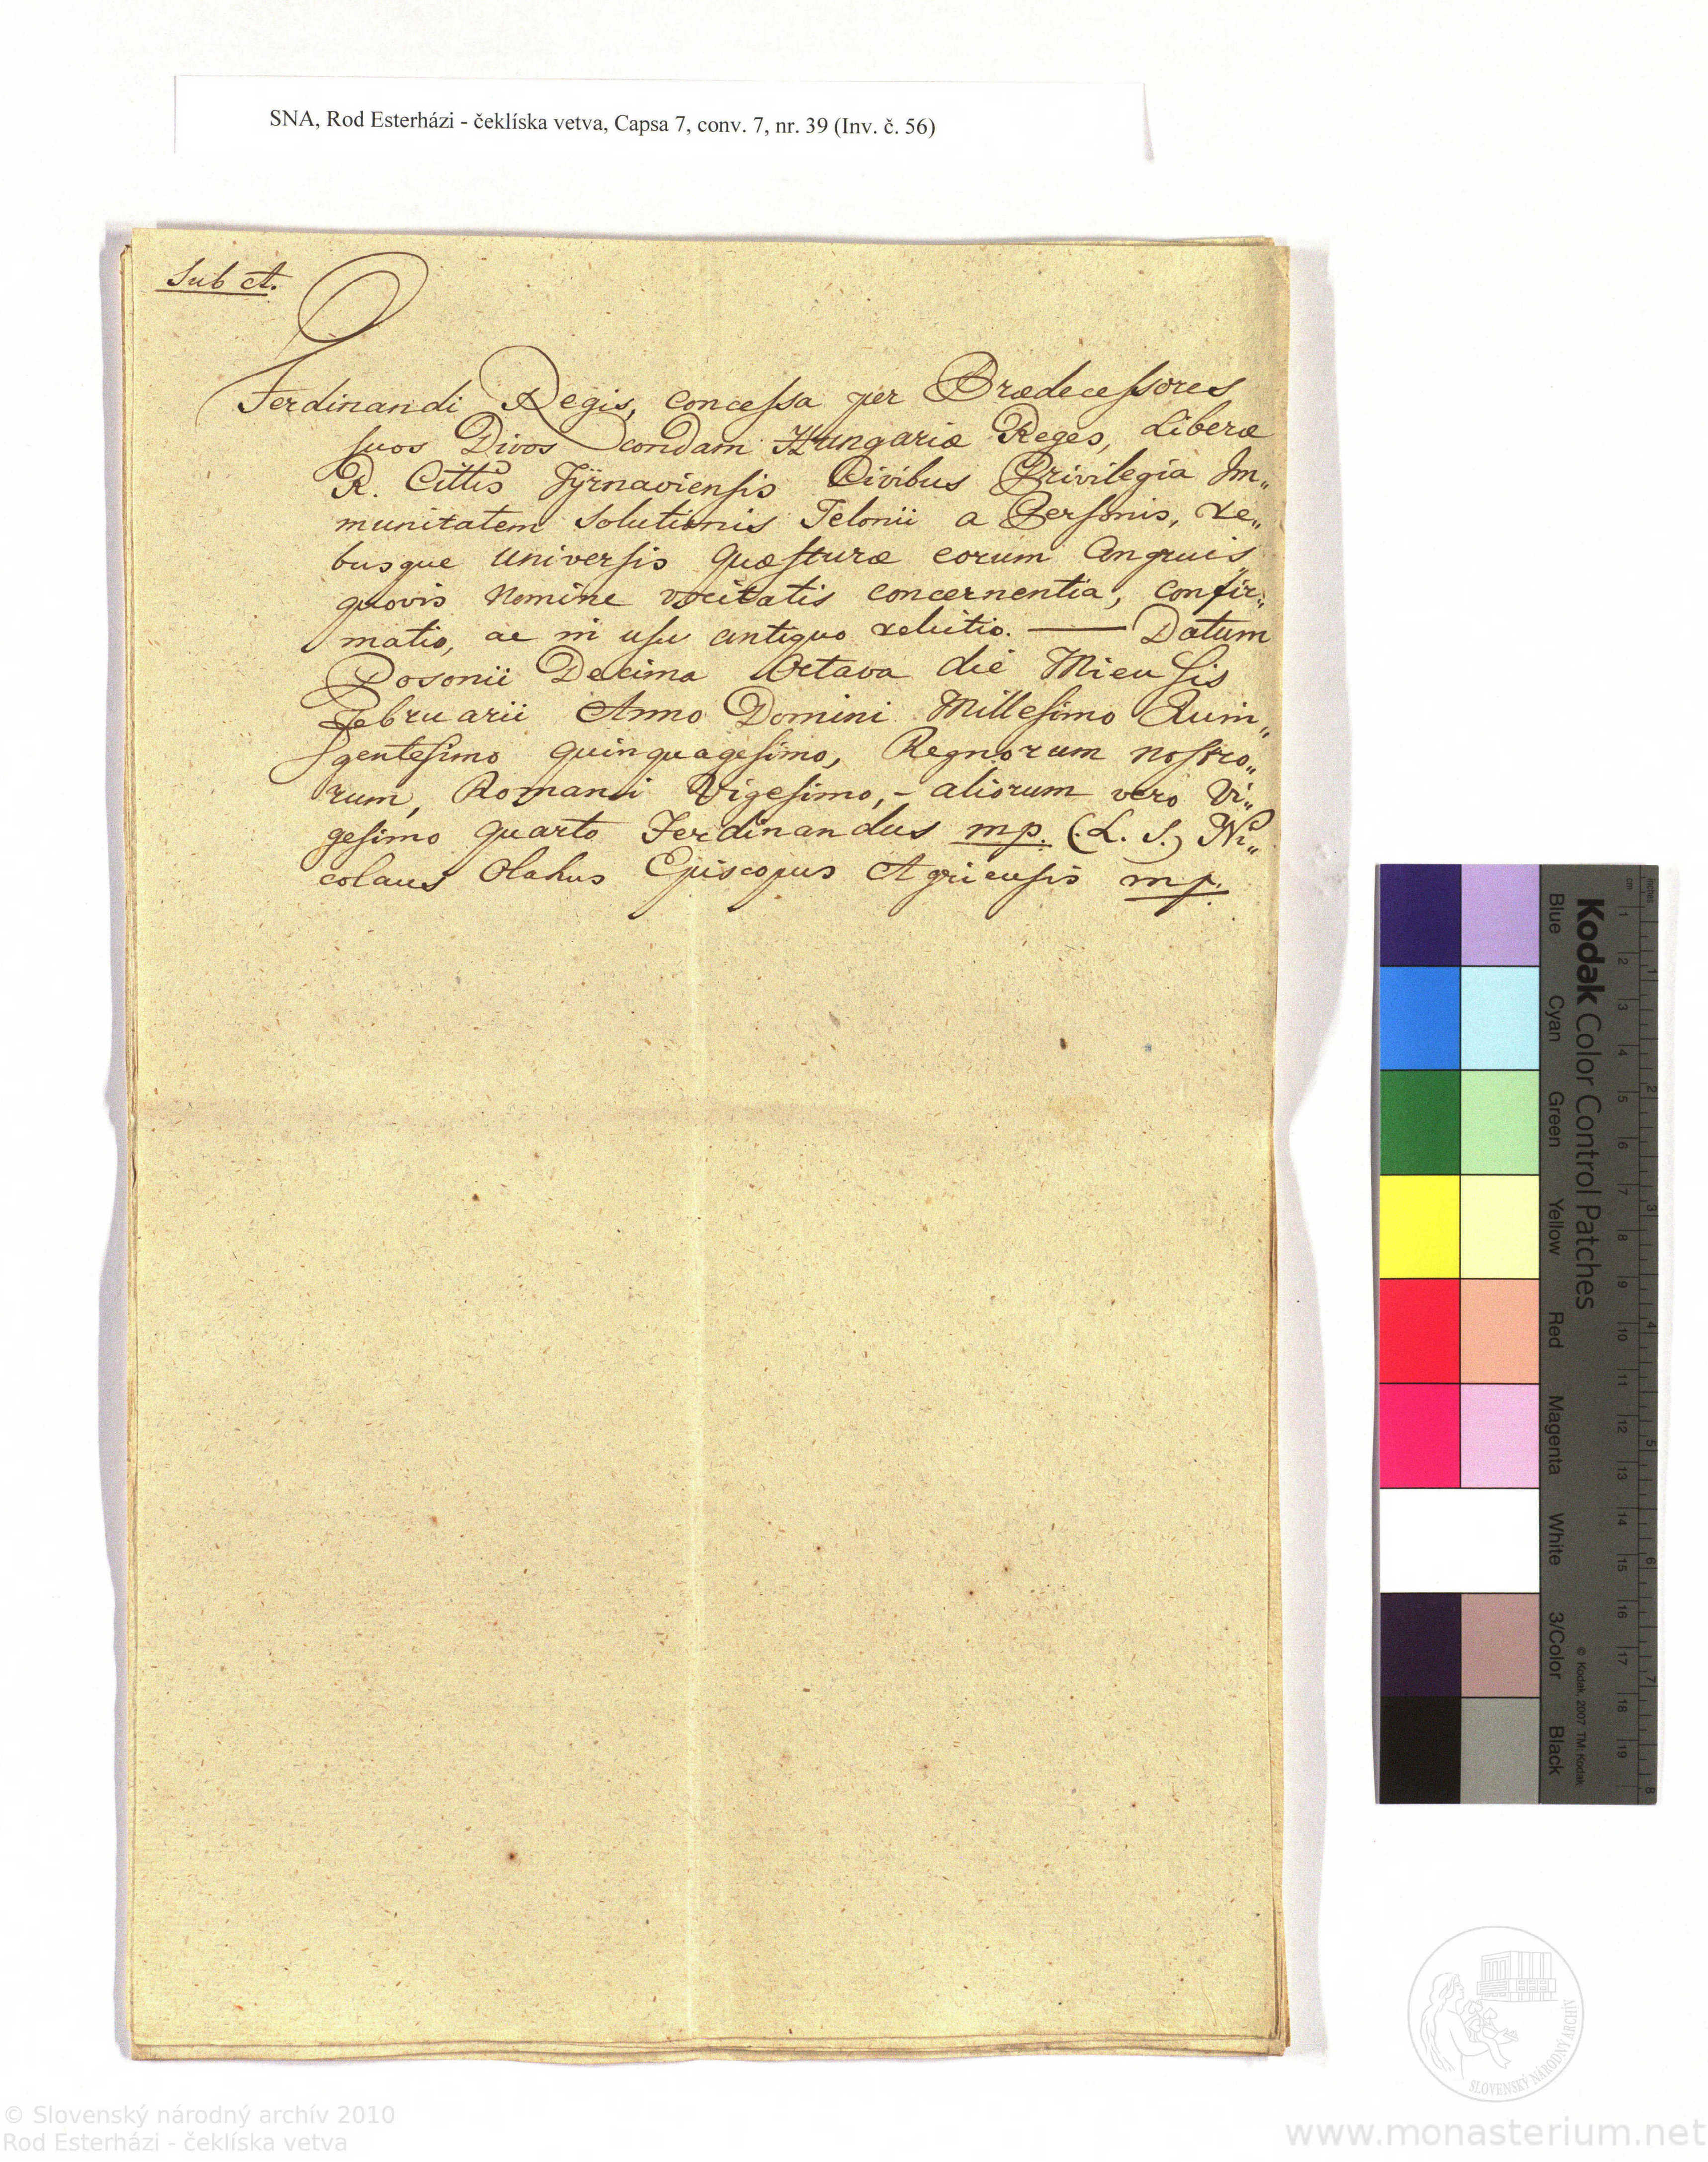 SNA, Rod Esterházi - čeklíska vetva, Capsa 7, conv. 7, nr. 39 (Inv. č. 56)
Sub A.
Ferdinandi Regis, concessa per Prædecessores
suos Divos condam Hungariæ Reges, Liberæ
R. Cittis Tÿrnaviensis Civibus Privilegia Im„
munitatem Solutionis Telonii a Personis, re„
busque universis quæsturæ eorum Congruis
quovis Nomine vocitatis concernentia, confir„
matio, ac in usu antiquo relictio. — Datum
Posonii Decima Octava die Mensis
Februarii Anno Domini Millesimo Quin„
gentesimo quinquagesimo, Regnorum nostro„
rum, Romani Vigesimo, - aliorum vero Vi„
gesimo quarto Ferdinandus mp. (L. S.) Ni„
colaus Olahus Episcopus Agriensis mp.
Kodak Color Control Patches
Blue Cyan Green Yellow Red Magenta White 3/Color Black
© Kodak, 2007 TM: Kodak
inches
cm 1 2 3 4 5 6 7 8 9 10 11 12 13 14 15 16 17 18 19
1 2 3 4 5 6 7 8
SLOVENSKÝ NÁRODNÝ ARCHÍV
© Slovenský národný archív 2010
Rod Esterházi - čeklíska vetva
www.monasterium.net